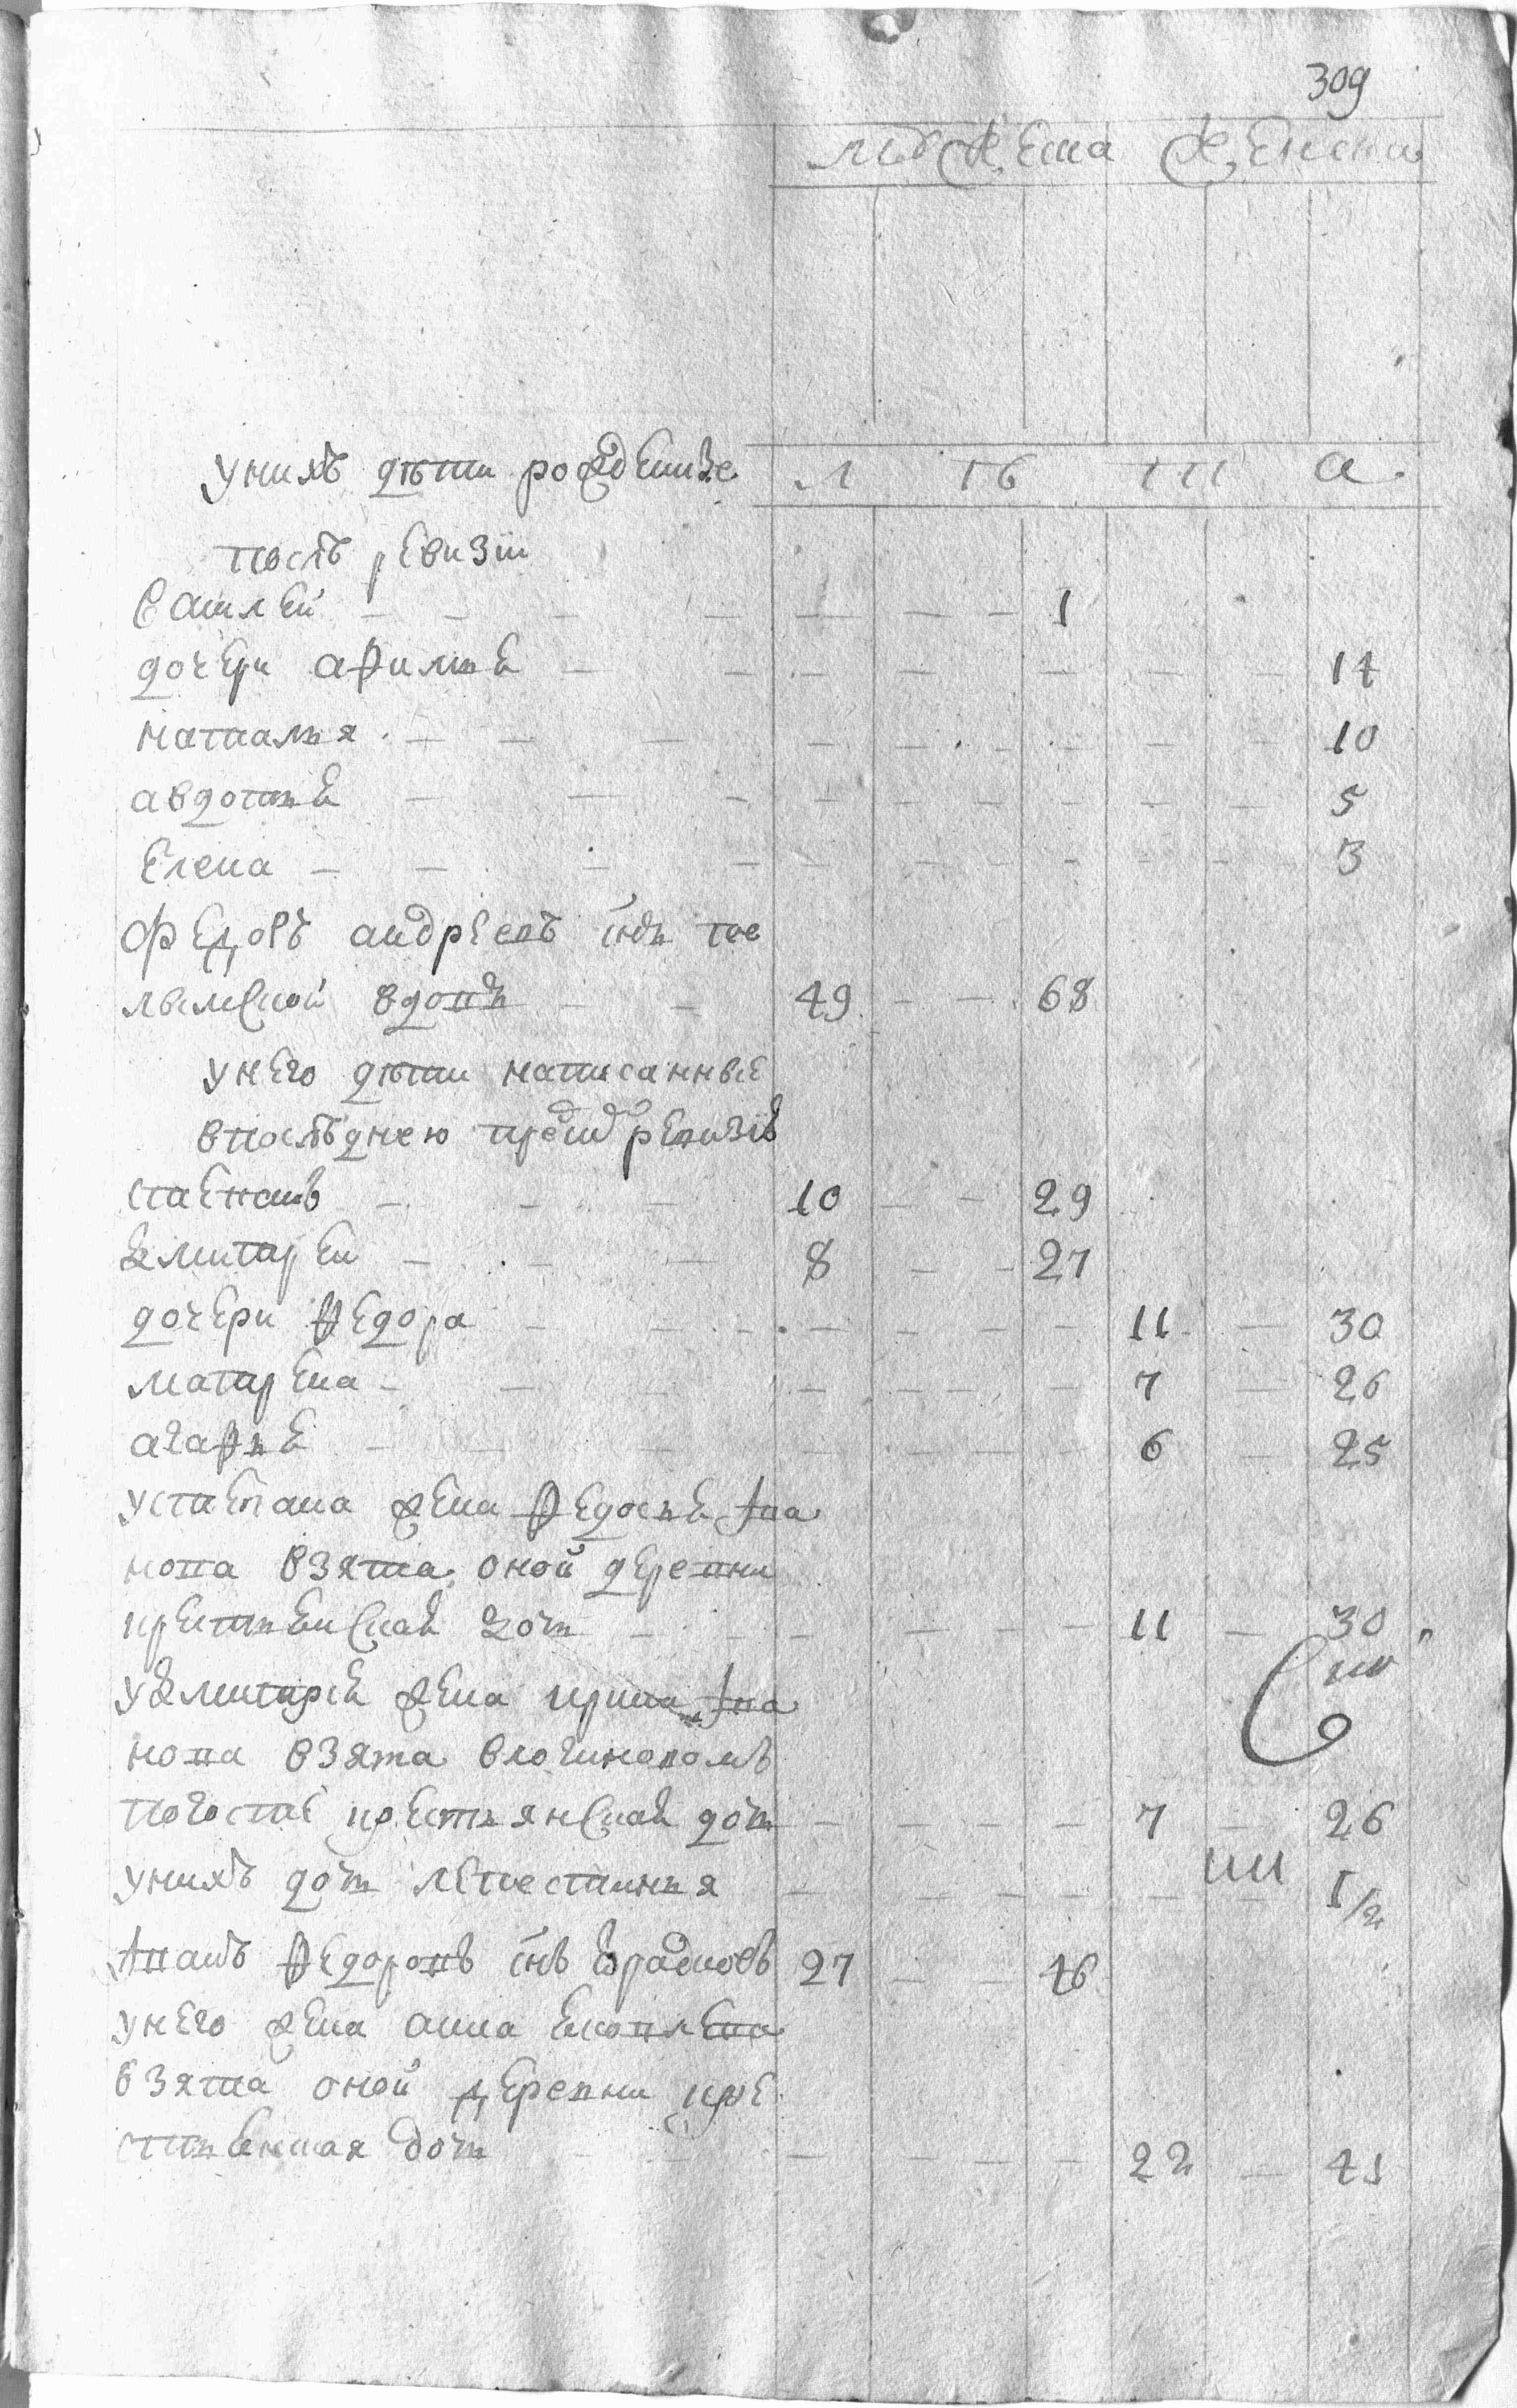 309
мужеска женска
л ѣ т а
у нихъ дѣти рожденные
послѣ ревизіи
василей 1
дочери афимья 14
наталья 10
авдотья 5
елена 3
Федоръ андреевъ снъ
вдовъ 49 68
у него дѣти написанные
в последнею пред ревизiю
степанъ 10 29
дмитрей 8 27
дочери федора 11 30
матрена 7 26
агафья 6 25
у степана жена федосья ива
нова взята оной деревни
крестьянская дочь 11 30
у дмитрея жена ирина ива
нова взята в
погосте крестьянская дочь 7 26
у нихъ дочь 1/2
иванъ федоровъ снъ 27 46
у него жена анна
взята оной деревни кре
стьянская дочь 22 41